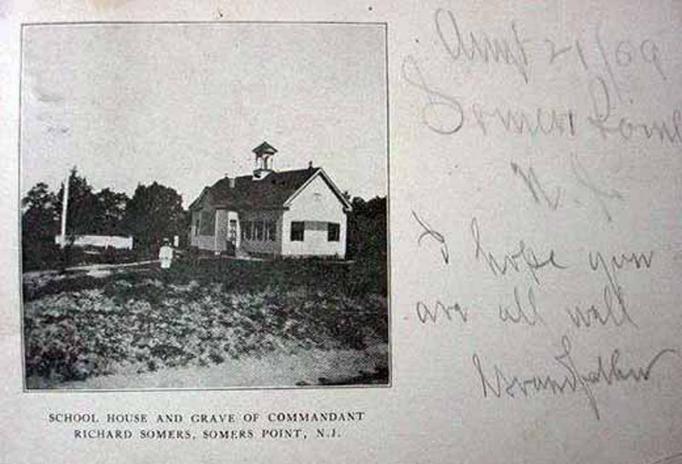 SCHOOL HOUSE AND GRAVE OF COMMANDANT
RICHARD SOMERS, SOMERS POINT, N.J.
21/09
Somers Point
N. J.
I hope you
are all well
Grandfather